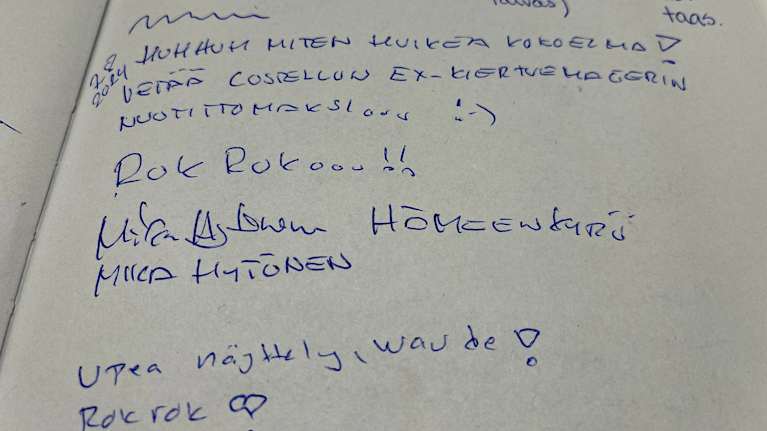 taas.
7.8 2024
HUHHUH MITEN HUIKEA KOKOELMA!
VETÄÄ COSTELLON EX-KIERTUEMAGERIN
NUOTITTOMAKSI... !:-)
ROK ROKooo!!
HÄMEENKYRÖ
MIKA HYTÖNEN
UPea näyttely, wau be!
Rok rok